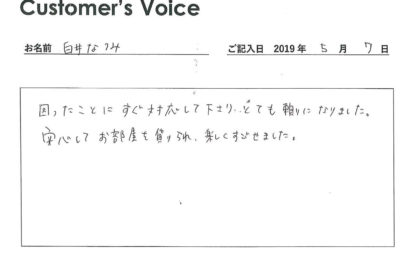 Customer's Voice
お名前 白井なつみ ご記入日 2019年 5月 7日
困ったことにすぐ対応して下さり、とても頼りになりました。
安心してお部屋も借りられ、楽しくすごせました。